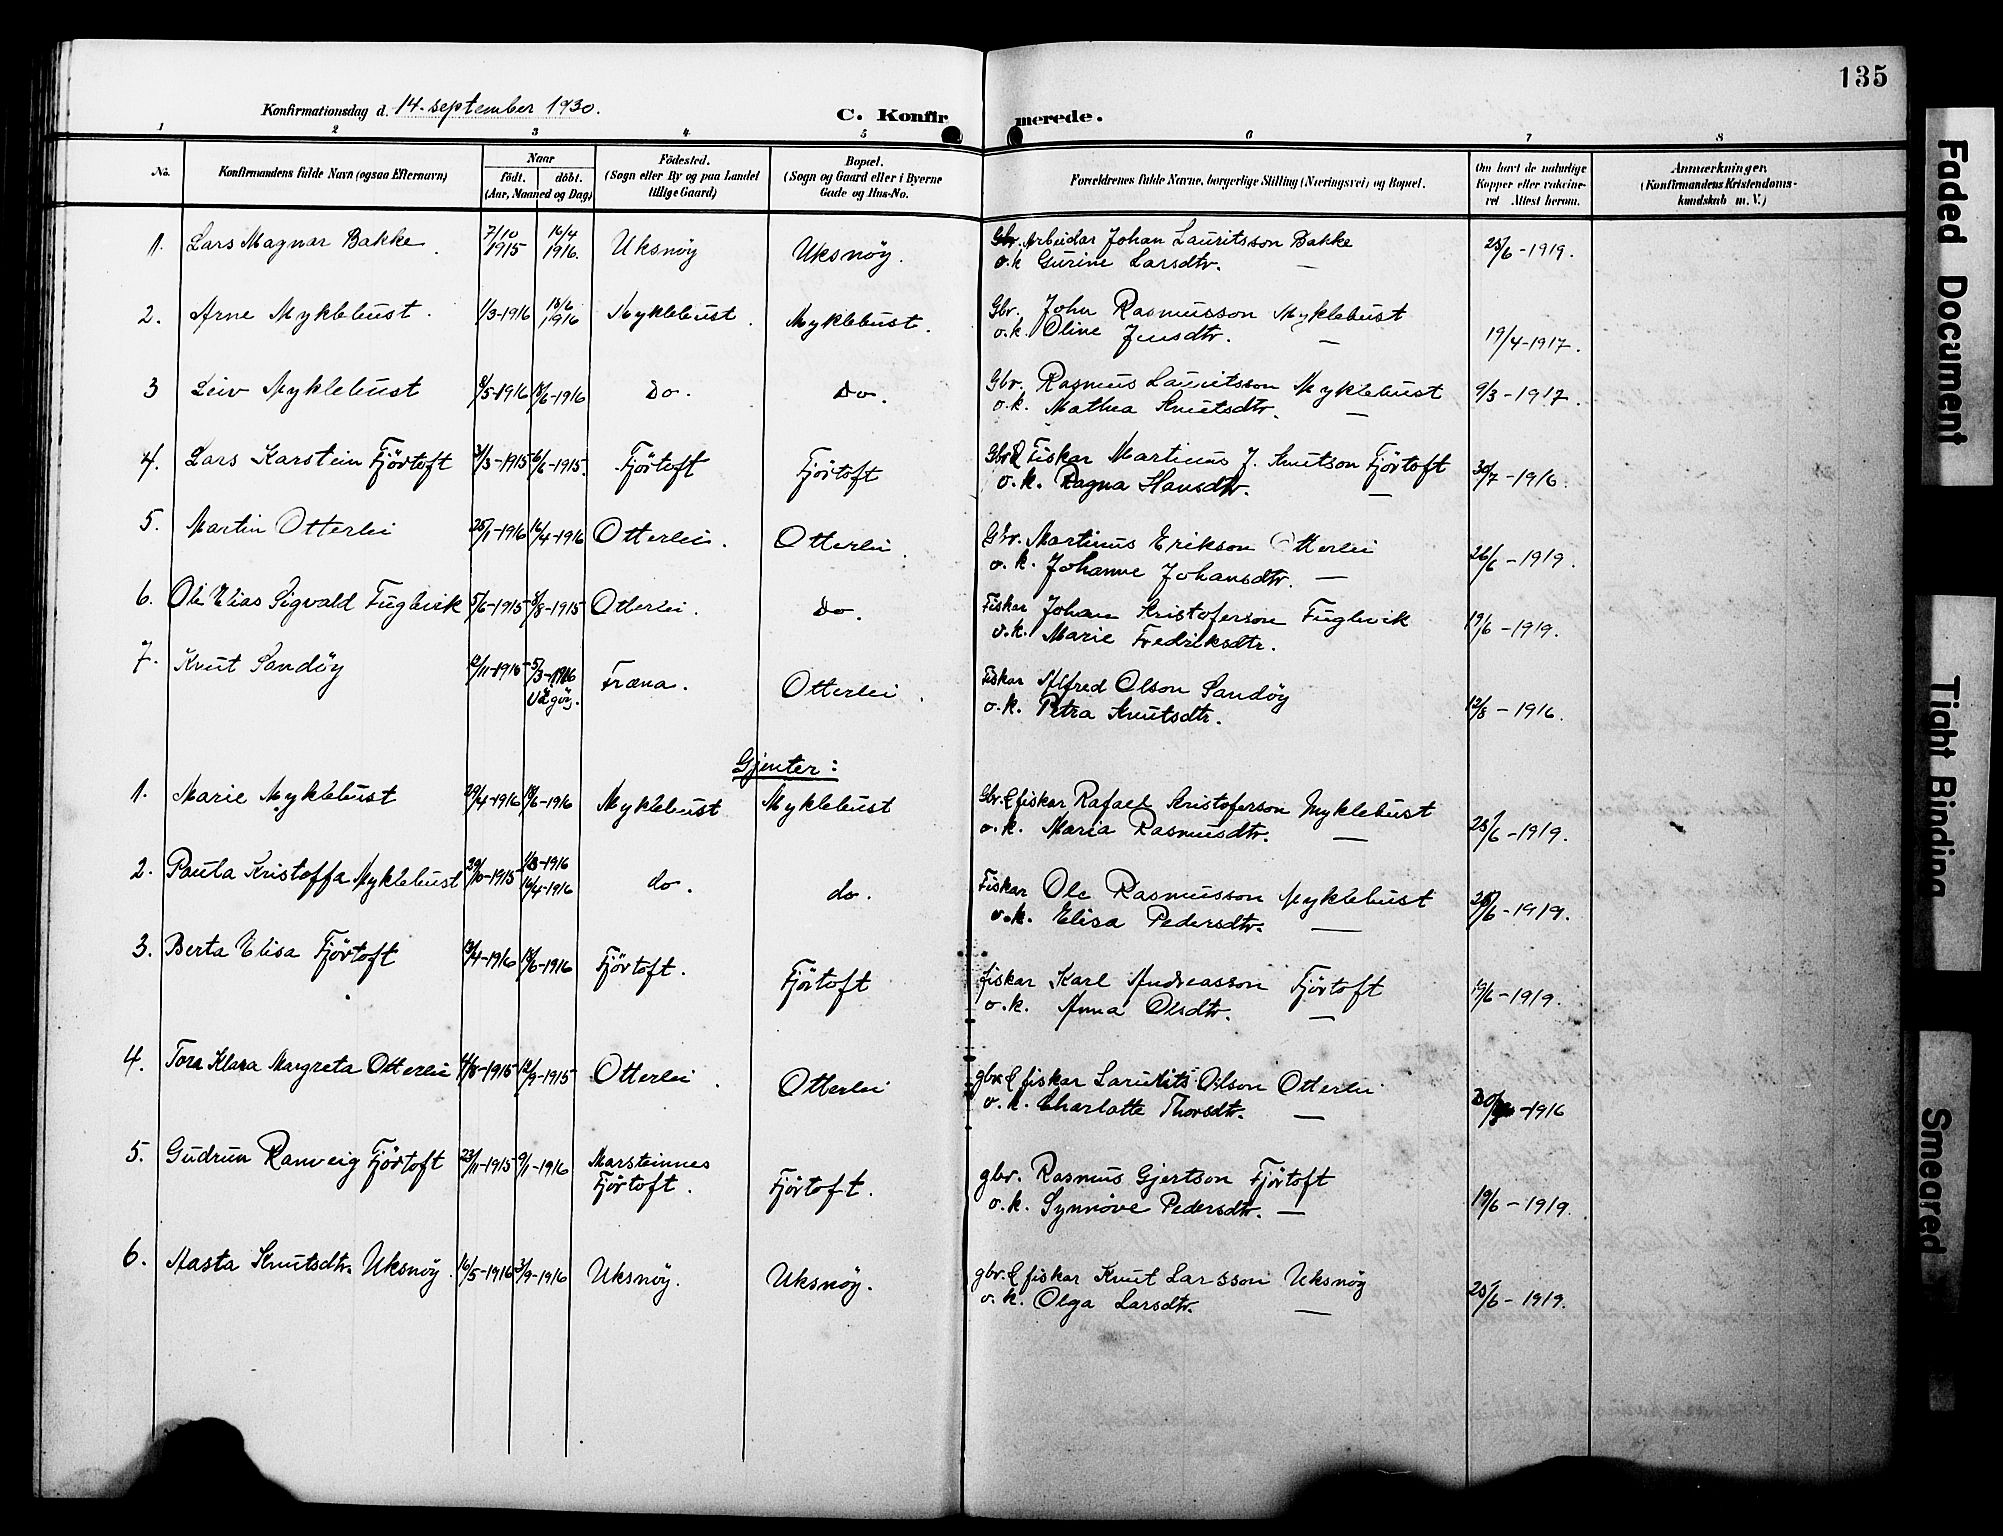 135
Konfirmationsdag d. 14. september 1930.
C. Konfirmerede.
1 2 3 4 5 6 7 8
No.
Konfirmandens fulde Navn (ogsaa Efternavn)
Naar
födt. döbt.
(Aar, Maaned og Dag)
Födested.
(Sogn eller By og paa Landet
tillige Gaard)
Bopæl.
(Sogn og Gaard eller i Byerne
Gade og Hus-No.
Forældrenes fulde Navne, borgerlige Stilling (Næringsvei) og Bopæl.
Om havt de naturlige
Kopper eller vakcine-
ret Attest herom.
Anmærkninger.
(Konfirmandens Kristendoms-
kundskab m. V.)
1. Lars Magnar Bakke. 7/10 1915 16/4 1916. Uksnöy Uksnöy. Arbeidar Johan Lauritsson Bakke 25/6-1919.
o.k. Gurine Larsdtr. —
2. Arne Myklebust. 1/3-1916 18/6 1916 Myklebust. Myklebust. Gbr. John Rasmusson Myklebust
o.k. Oline Jensdtr. — 19/4-1917.
3 Leiv Myklebust 8/5-1916 18/6-1916 Do. Do. Gbr. Rasmus Lauritsson Myklebust 9/3-1917.
o.k. Mathea Knutsdtr. —
4. Lars Karstein Fjörtoft 3/3-1915 6/6-1915. Fjörtoft Fjörtoft Gbr. & Fiskar Martinus J. Knutson Fjörtoft 30/7-1916.
o.k. Ragna Hansdtr. —
5. Martin Otterlei 25/1-1916 16/4-1916 Otterlei. Otterlei. Gbr. Martinus Erikson Otterlei 26/6-1919.
o.k. Johanne Johansdtr. —
6. Ole Elias Sigvald Fuglevik 5/6-1915 8/8-1915 Otterlei. Do. Fiskar Johan Kristoferson Fuglevik 19/6-1919.
o.k. Marie Fredriksdtr.
7. Knut Sandöy 12/11-1915 5/3-1916 Vågöy. Fræna. Otterlei. Fiskar Alfred Olson Sandöy
o.k. Petra Knutsdtr. 12/8-1916.
Gjenter:
1. Marie Myklebust 29/4-1916 18/6-1916 Myklebust Myklebust Gbr. & fiskar Rafael Kristoferson Myklebust
o.k. Maria Rasmusdtr. — 25/6-1919.
2. Paula Kristoffa Myklebust 29/10-1915 1/3-1916 16/4-1916 do. do. Fiskar Ole Rasmusson Myklebust
o.k. Elisa Pedersdtr. — 25/6-1919.
3. Berta Elisa Fjörtoft 13/4-1916 18/6-1916 Fjörtoft. Fjörtoft fiskar Karl Andreasson Fjörtoft
o.k. Anna Olsdtr. — 19/6-1919.
4. Tora Klara Margreta Otterlei 4/8-1915 12/9-1915 Otterlei. Otterlei gbr. & fiskar Laurits Olson Otterlei
o.k. Charlotte Thorsdtr. — -1916
5. Gudrun Ranveig Fjörtoft 23/11-1915 9/1-1916 Marsteinnes Fjörtoft. Fjörtoft. gbr. Rasmus Gjertson Fjörtoft
o.k. Synnöve Pedersdtr. — 19/6-1919.
6. Aasta Knutsdtr. Uksnöy. 16/5-1916 3/9-1916 Uksnöy. Uksnöy. gbr. & fiskar Knut Larsson Uksnöy
o.k. Olga Larsdtr. — 25/6-1919.
Faded Document
Tight Binding
Smeared